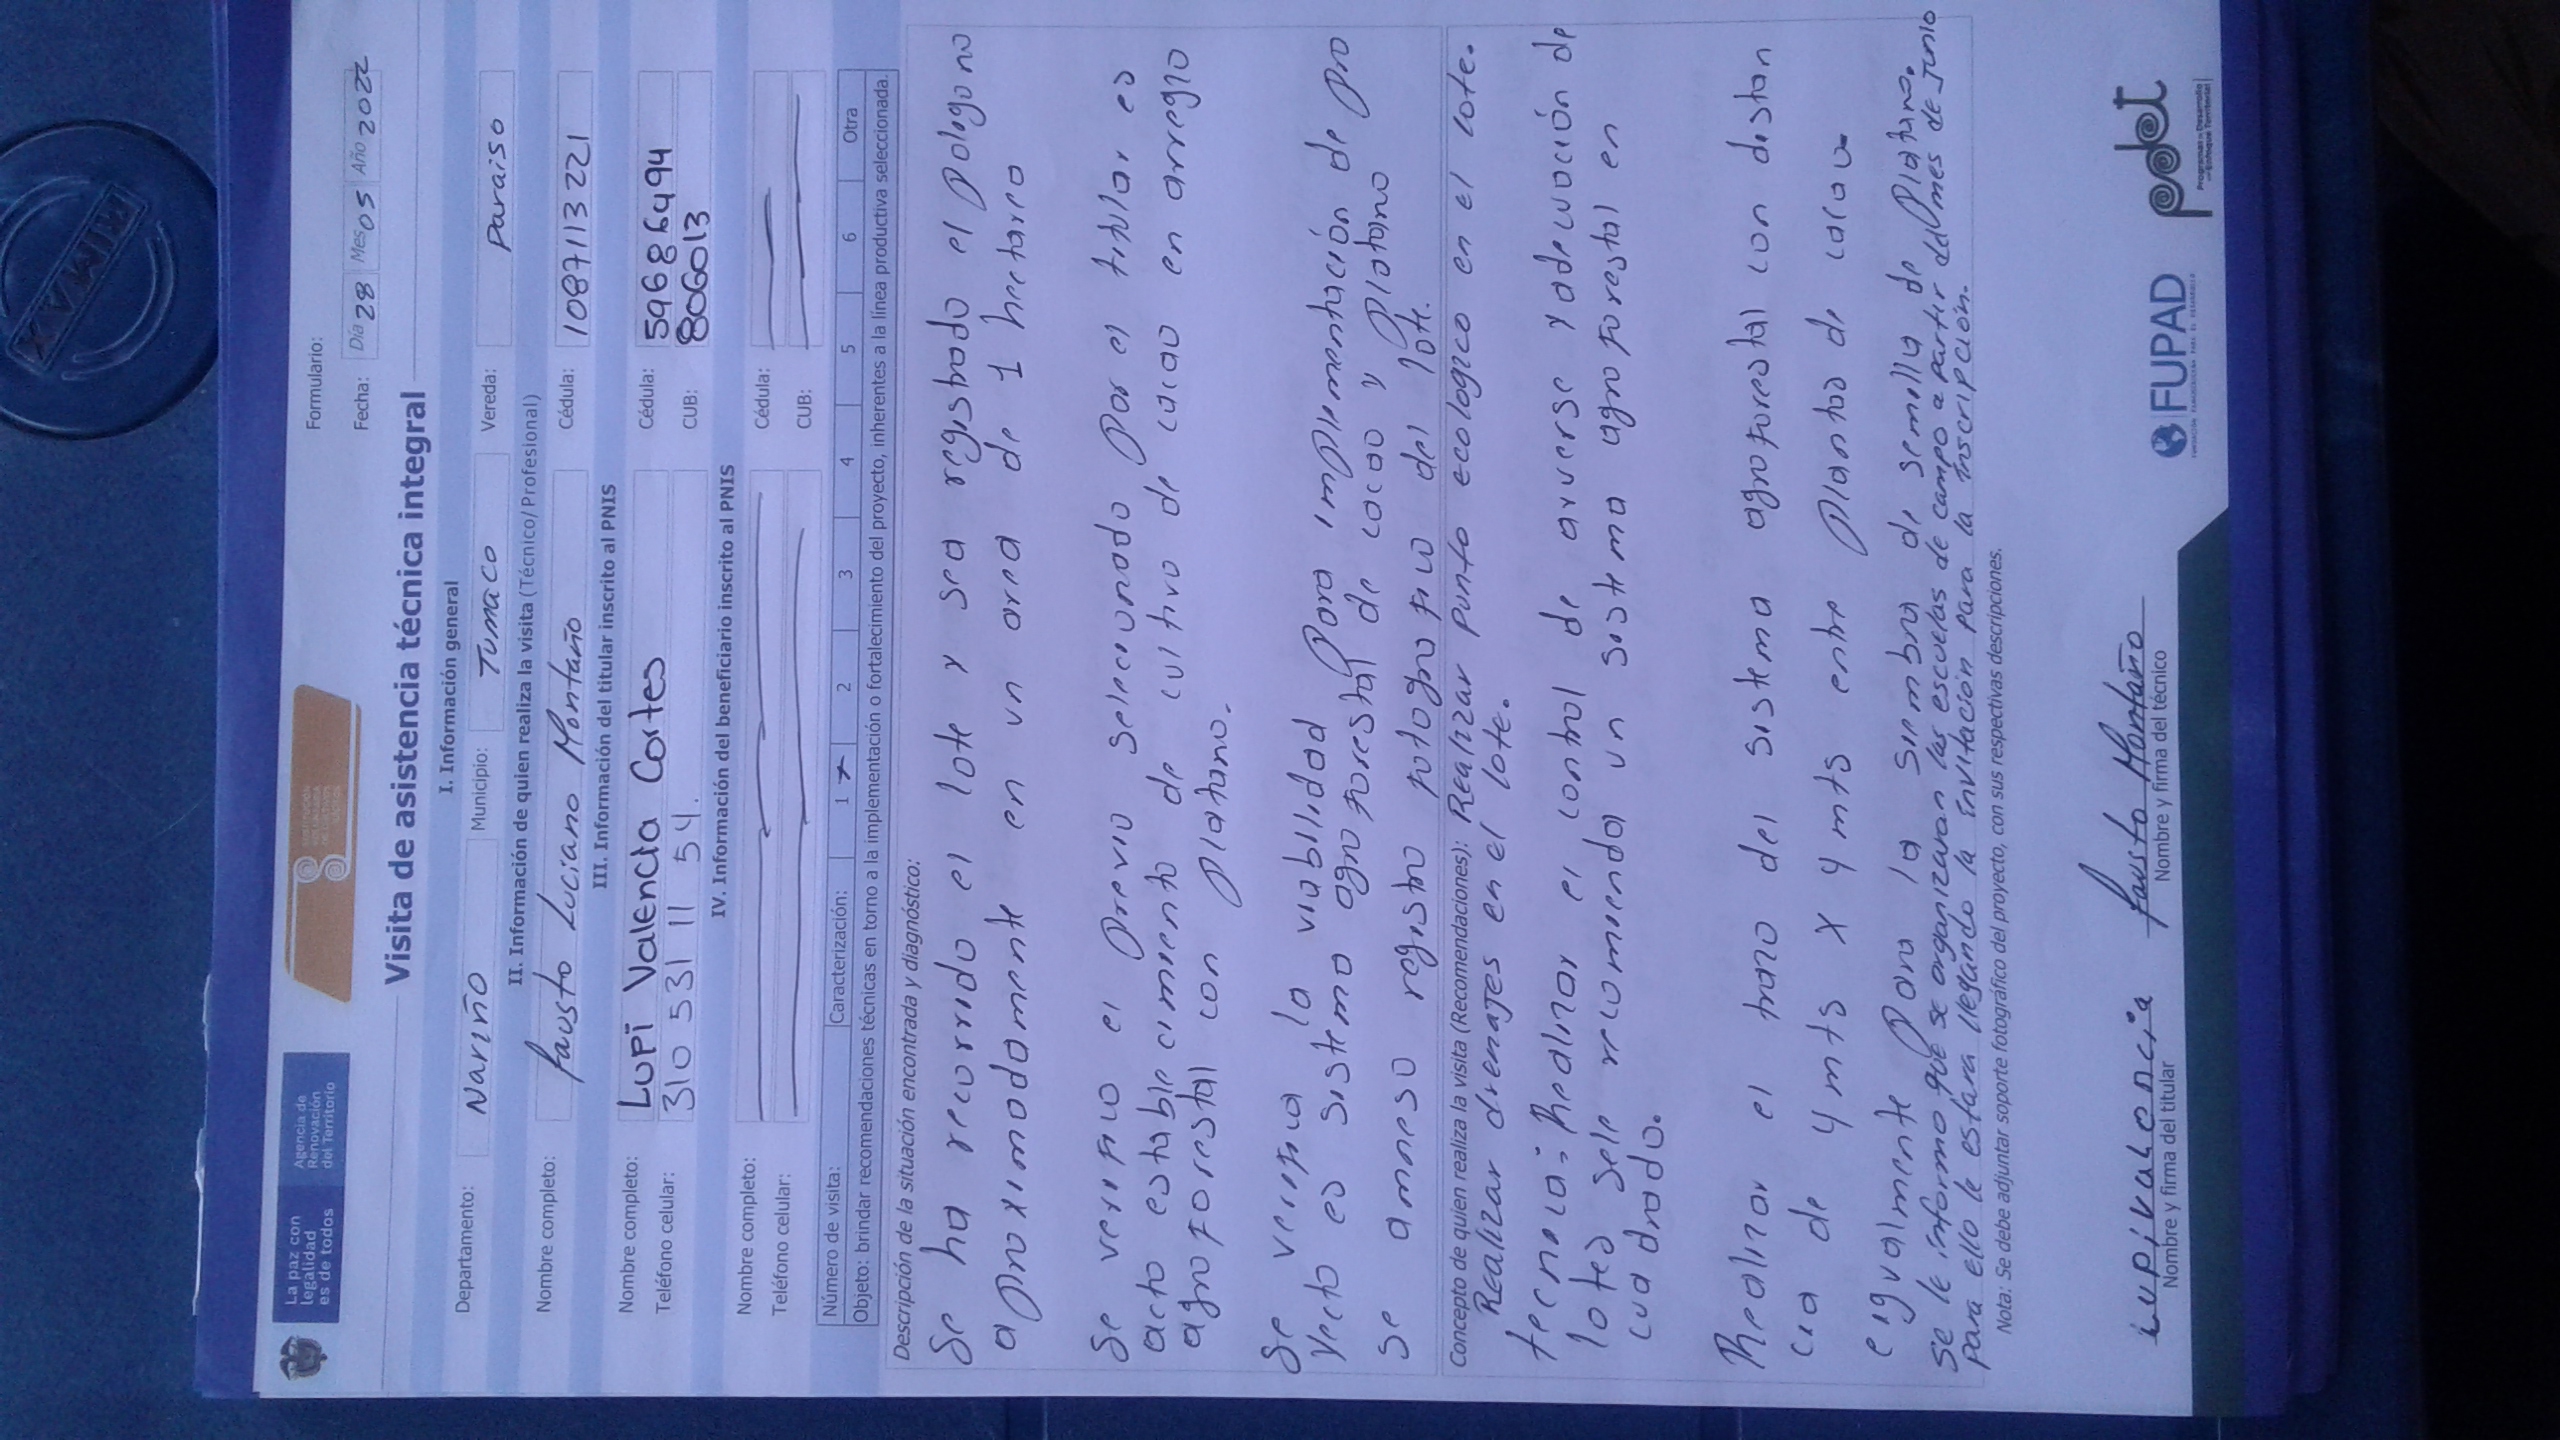 La paz con
legalidad
es de todos
Agencia de
Renovación
del Territorio
Formulario:
Fecha: Día 28 Mes 05 Año 2022
Visita de asistencia técnica integral
I. Información general
Departamento: Nariño Municipio: Tumaco Vereda: Paraiso
II. Información de quien realiza la visita (Técnico/Profesional)
Nombre completo: Fausto Luciano Montaño Cédula: 1087113221
III. Información del titular inscrito al PNIS
Nombre completo: Lupi Valencia Cortes Cédula: 59686494
Teléfono celular: 310 531 11 54. CUB: 806013
IV. Información del beneficiario inscrito al PNIS
Nombre completo: Cédula:
Teléfono celular: CUB:
Número de visita: Caracterización: 1 x 2 3 4 5 6 Otra
Objeto: brindar recomendaciones técnicas en torno a la implementación o fortalecimiento del proyecto, inherentes a la línea productiva seleccionada.
Descripción de la situación encontrada y diagnóstico:
Se ha recorrido el lote y sea registrado el pologono
aproximadamente en un area de 1 hectarea
Se verifico el previo seleccionado por el titular es
acto establecimiento de cultivo de cacao en arreglo
agroforestal con platano.
Se verifica la viabilidad para implementación de pro
yecto es sistema agroforestal de cacao y platano
se amneso registro fotografico del lote.
Concepto de quien realiza la visita (Recomendaciones): Realizar punto ecologico en el lote.
Realizar drenajes en el lote.
Realizar el control de arverse y adecuación de
lotes sele recomienda un sistema agroforestal en
cuadrado.
Realizar el trazo del sistema agroforestal con distan
cia de 4 mts x 4 mts entre plantas de cacao
engualmente para la siembra de semilla de platano.
Se le informo que se organizaran las escuelas de campo a partir del mes de Junio
para ello le estara llegando la invitación para la inscripción.
Nota: Se debe adjuntar soporte fotográfico del proyecto, con sus respectivas descripciones.
Lupivalencia Fausto Montaño
Nombre y firma del titular Nombre y firma del técnico
FUPAD
pdet
Programas de Desarrollo
con Enfoque Territorial